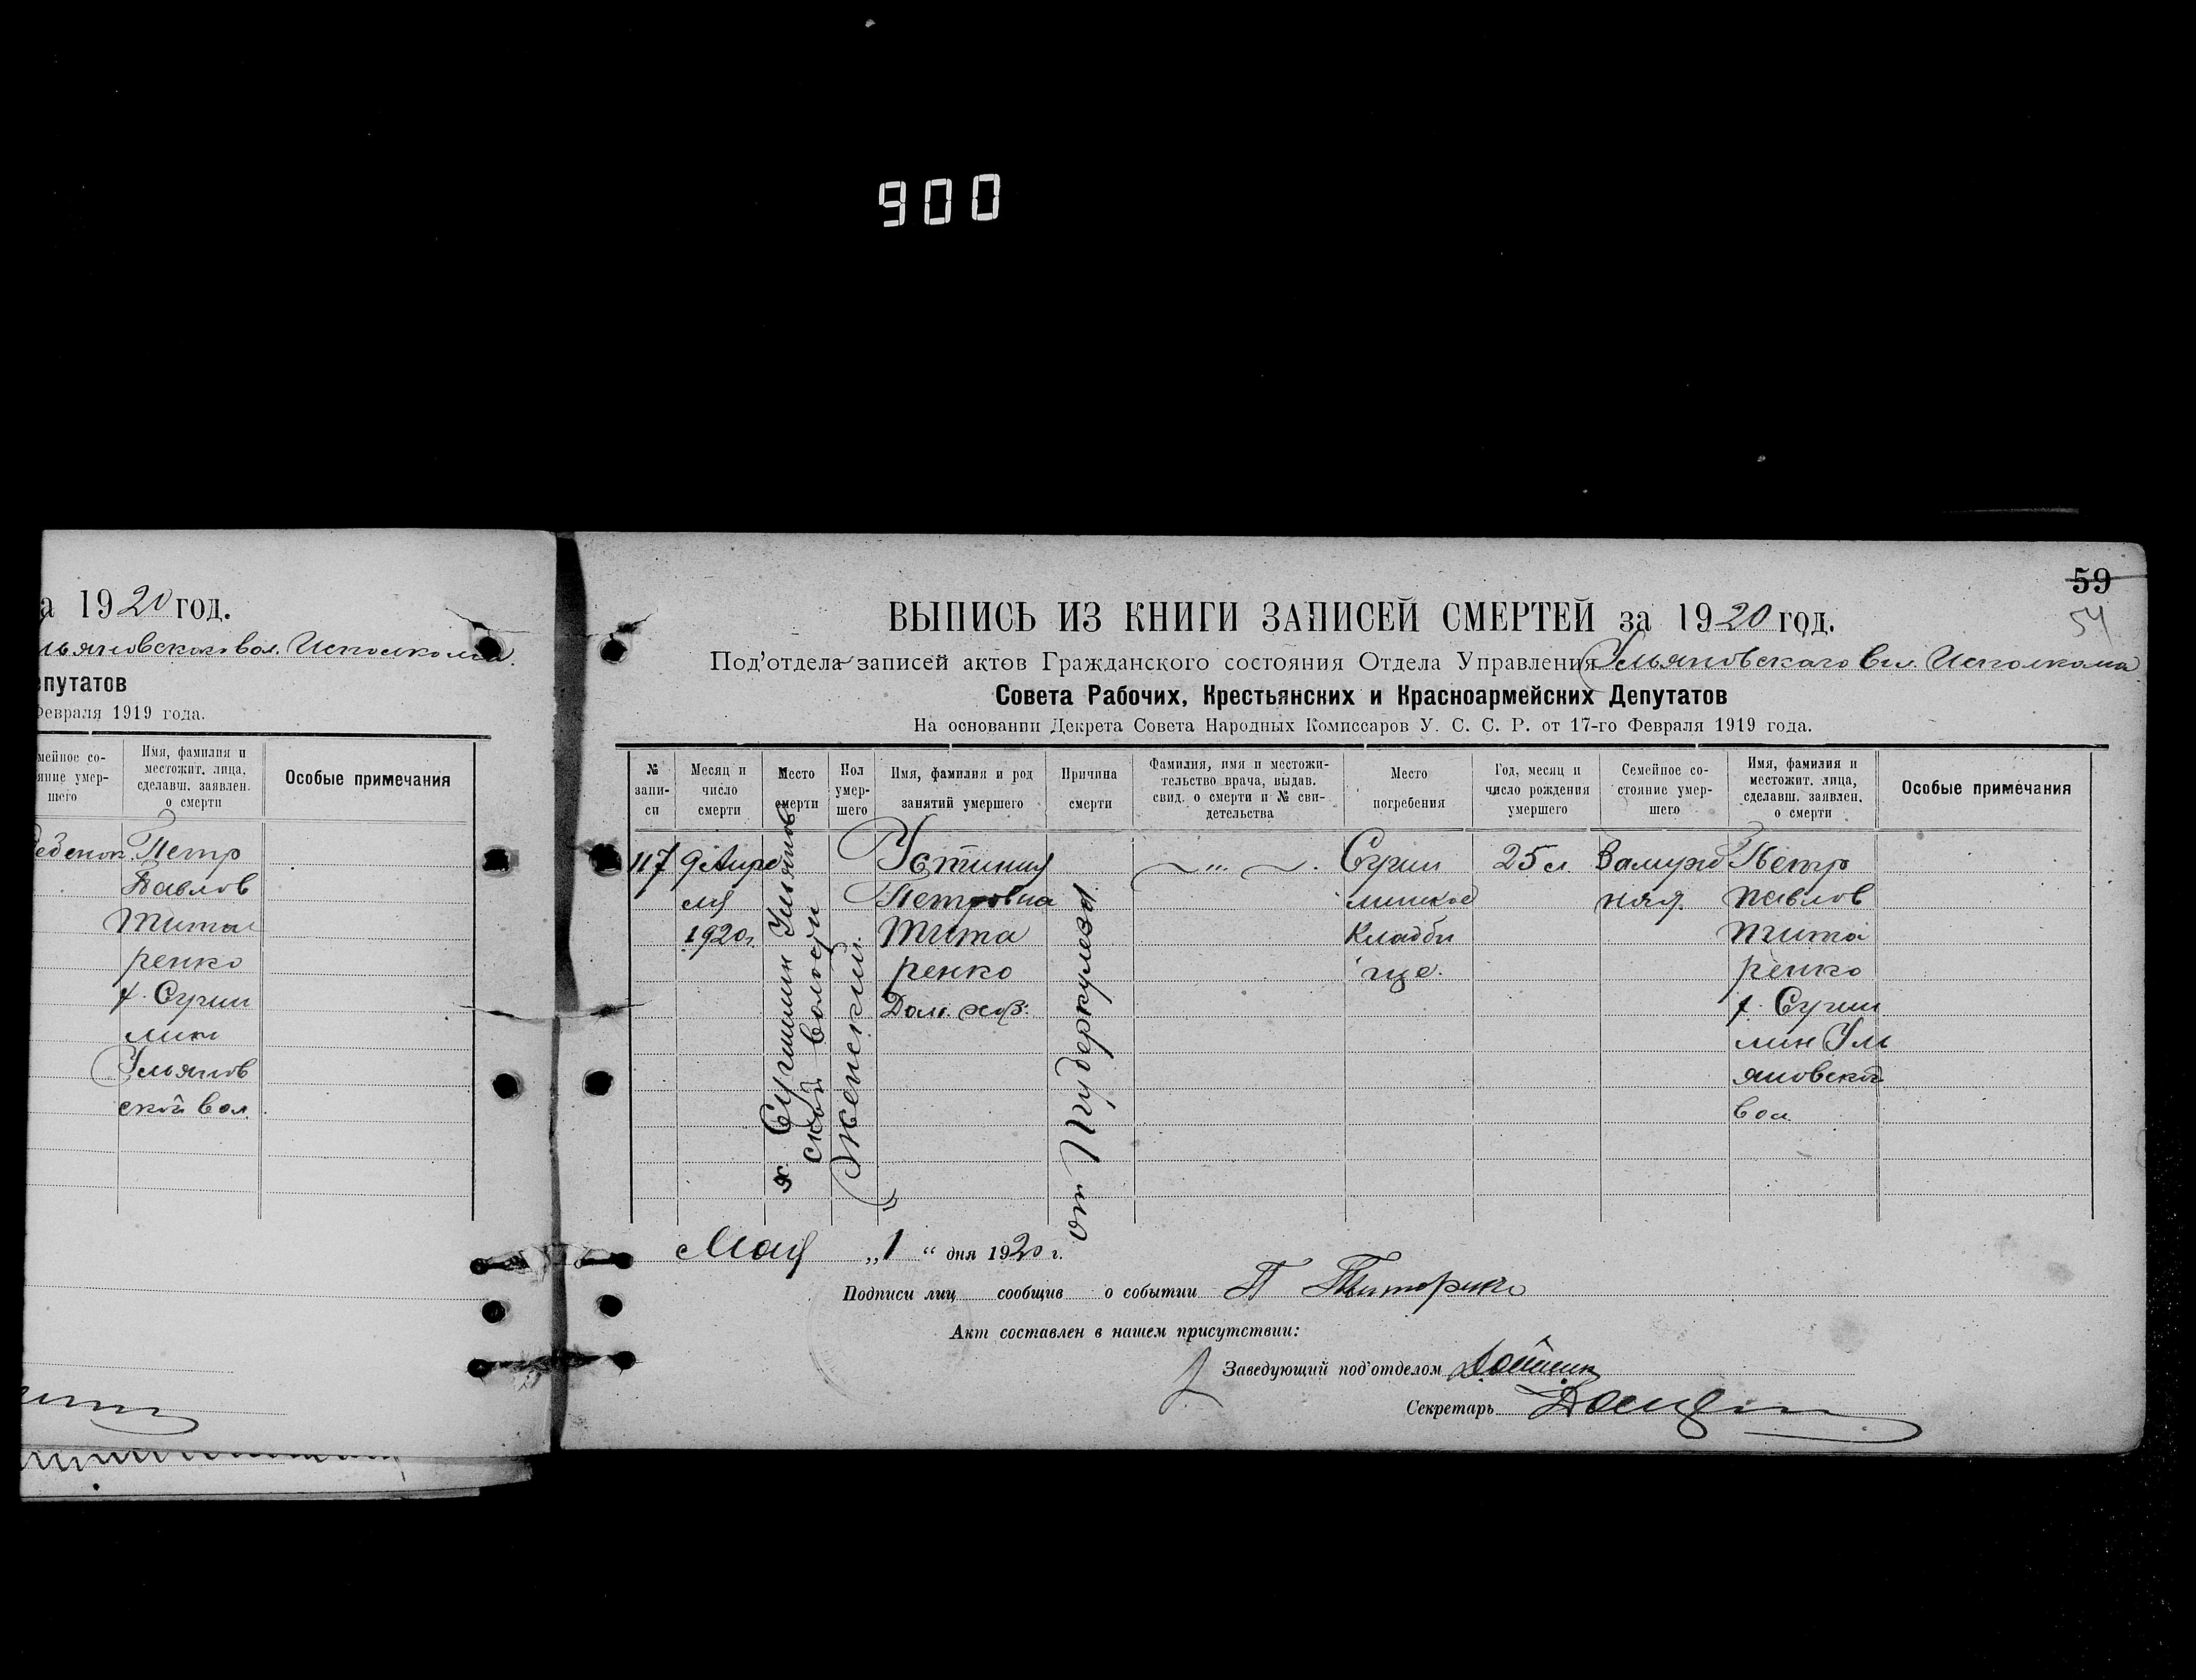 900
а 1920 год.
льяновского вол. Исполкома.
епутатов
Февраля 1919 года.
мейное со-
яние умер-
шего
Имя, фамилия и
местожит. лица,
сделавш. заявлен.
о смерти
Особые примечания
ебенок Петр
Павлов
Тита
ренко
х. Сухин
лин
Ульянов
ской вол.
59
54
ВЫПИСЬ ИЗ КНИГИ ЗАПИСЕЙ СМЕРТЕЙ за 1920 год.
Под'отдела записей актов Гражданского состояния Отдела Управления Ульяновского Вол. Исполкома
Совета Рабочих, Крестьянских и Красноармейских Депутатов
На основании Декрета Совета Народных Комиссаров У. С. С. Р. от 17-го Февраля 1919 года.
№
запи-
си
Месяц и
число
смерти
Место
смерти
Пол
умер-
шего
Имя, фамилия и род
занятий умершего
Причина
смерти
Фамилия, имя и местожи-
тельство врача, выдав.
свид. о смерти и № сви-
детельства
Место
погребения
Год, месяц и
число рождения
умершего
Семейное со-
стояние умер-
шего
Имя, фамилия и
местожит. лица,
сделавш. заявлен.
о смерти
Особые примечания
117
9 Апре
ля
1920 г.
ской волости
Женский
Устиния
Петровна
Тита
ренко
Дом. хоз.
от Туберкулеза
"
кладби
ще.
25 л.
Замуж
няя
Петр
Павлов
Тита
ренко
Уль
яновской
вол
Мая „1“ дня 1920 г.
Подписи лиц сообщив о событии П Титоренко
Акт составлен в нашем присутствии:
Заведующий под'отделом
Секретарь